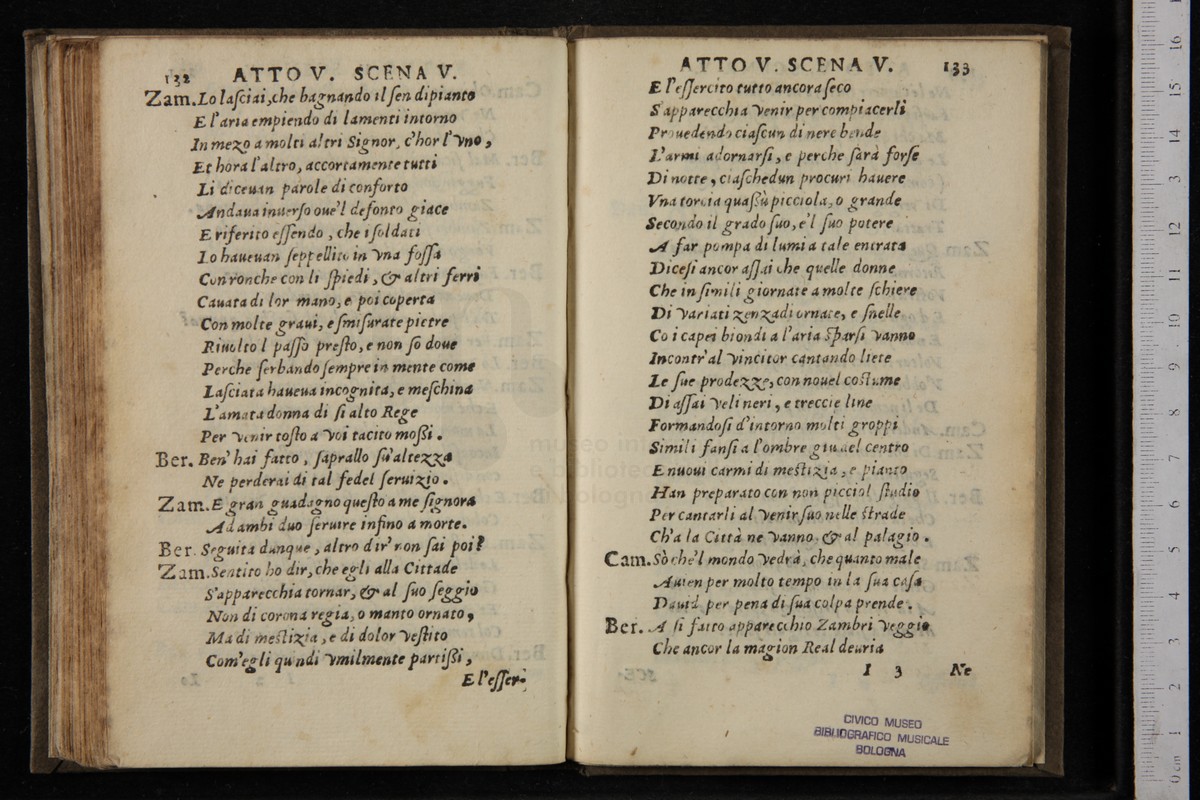 132 ATTO V. SCENA V.
Zam. Lo lasciai, che bagnando il sen di pianto
E l'aria empiendo di lamenti intorno
In mezo a molti altri Signor, c'hor l'vno,
Et hora l'altro, accortamente tutti
Li diceuan parole di conforto
Andaua inuerso oue'l defonto giace
E riferito essendo, che i soldati
Lo haueuan seppellito in vna fossa
Con ronche con li spiedi, & altri ferri
Cauata di lor mano, e poi coperta
Con molte graui, e smisurate pietre
Riuolto l passo presto, e non so doue
Perche serbando sempre in mente come
Lasciata haueua incognita, e meschina
L'amata donna di si alto Rege
Per venir tosto a voi tacito mossi.
Ber. Ben' hai fatto, saprallo su'altezza
Ne perderai di tal fedel seruizio.
Zam. E gran guadagno questo a me signora
Ad ambi duo seruire infino a morte.
Ber. Seguita dunque, altro dir' non sai poi?
Zam. Sentito ho dir, che egli alla Cittade
S'apparecchia tornar, & al suo seggio
Non di corona regia, o manto ornato,
Ma di mestizia, e di dolor vestito
Com'egli quindi vmilmente partissi,
E l'esser-
ATTO V. SCENA V. 133
E l'essercito tutto ancora seco
S'apparecchia venir per compiacerli
Prouedendo ciascun di nere bende
L'armi adornarsi, e perche sarà forse
Di notte, ciaschedun procuri hauere
Vna torcia quassù picciola, o grande
Secondo il grado suo, e'l suo potere
A far pompa di lumi a tale entrata
Dicesi ancor assai che quelle donne
Che in simili giornate a molte schiere
Di variati zenzadi ornate, e snelle
Co i capei biondi a l'aria sparsi vanno
Incontr'al vincitor cantando liete
Le sue prodezze, con nouel costume
Di assai veli neri, e treccie line
Formandosi d'intorno molti groppi
Simili fansi a l'ombre giu del centro
E nuoui carmi di mestizia, e pianto
Han preparato con non picciol studio
Per cantarli al venir suo nelle strade
Ch'a la Città ne vanno, & al palagio.
Cam. Sò che'l mondo vedrà, che quanto male
Auien per molto tempo in la sua casa
Dauid per pena di sua colpa prende.
Ber. A si fatto apparecchio Zambri veggio
Che ancor la magion Real deuria
I 3 Ne
CIVICO MUSEO
BIBLIOGRAFICO MUSICALE
BOLOGNA